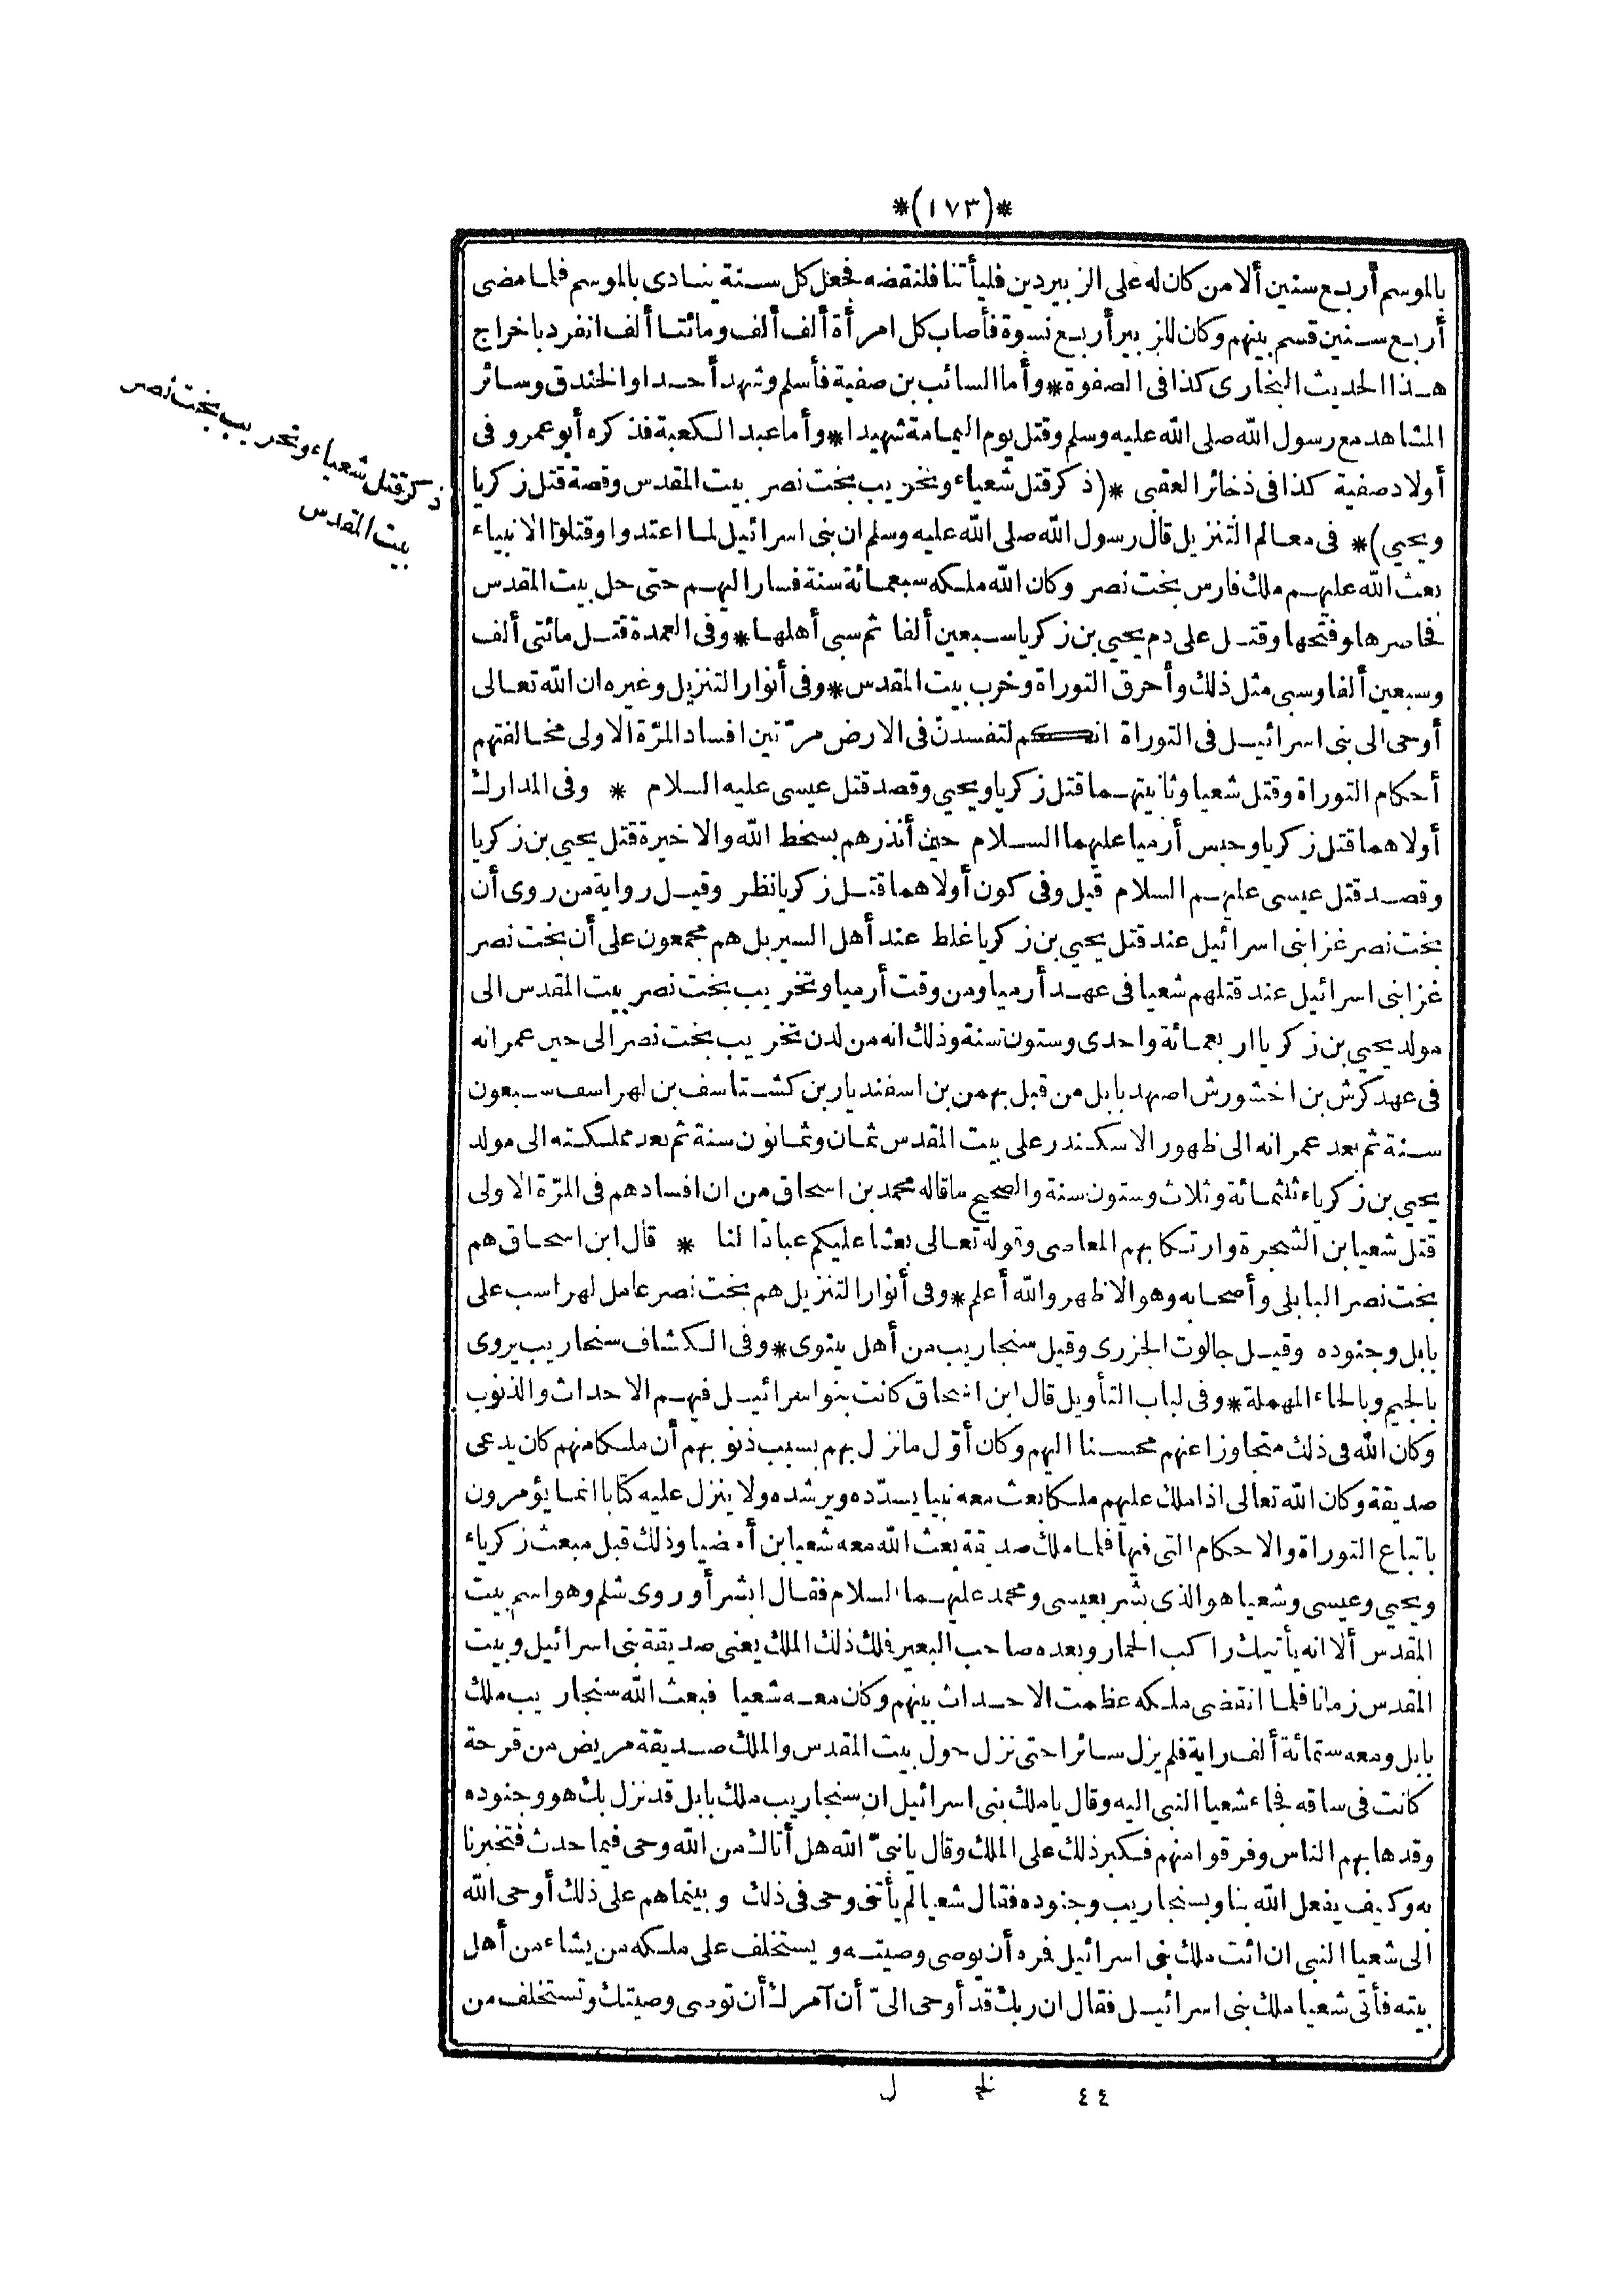 *(١٧٣)*
بالموسم أربع سنين ألا من كان له على الزبير دين فليأتنا فلنقضه فجعل كل سنة ينادى بالموسم فلما مضى
أربع سنين قسم بينهم وكان للزبير أربع نسوة فأصاب كل امرأة ألف ألف ومائتا ألف انفرد باخراج
هذا الحديث البخارى كذا فى الصفوة * وأما السائب بن صفية فأسلم وشهد أحدا والخندق وسائر
المشاهد مع رسول الله صلى الله عليه وسلم وقتل يوم اليمامة شهيدا * وأما عبد الكعبة فذكره أبو عمرو فى
أولاد صفية كذا فى ذخائر العقبى *(ذكر قتل شعياء وتخريب بخت نصر بيت المقدس وقصة قتل زكريا
ويحيى)* فى معالم التنزيل قال رسول الله صلى الله عليه وسلم ان بنى اسرائيل لما اعتدوا وقتلوا الانبياء
بعث الله عليهم ملك فارس بخت نصر وكان الله ملكه سبعمائة سنة فسار اليهم حتى حل بيت المقدس
فحاصرها وفتحها وقتل على دم يحيى بن زكريا سبعين ألفا ثم سبى أهلها * وفى العمدة قتل مائتى ألف
وسبعين ألفا وسبى مثل ذلك وأحرق التوراة وخرب بيت المقدس * وفى أنوار التنزيل وغيره ان الله تعالى
أوحى الى بنى اسرائيل فى التوراة انكم لتفسدنّ فى الارض مرّتين افساد المرّة الاولى مخالفتهم
أحكام التوراة وقتل شعيا وثانيتهما قتل زكريا ويحيى وقصد قتل عيسى عليه السلام * وفى المدارك
أولاهما قتل زكريا وحبس أرميا عليهما السلام حين أنذرهم بسخط الله والاخيرة قتل يحيى بن زكريا
وقصد قتل عيسى عليهم السلام قيل وفى كون أولاهما قتل زكريا نظر وقيل رواية من روى أن
بخت نصر غزا بنى اسرائيل عند قتل يحيى بن زكريا غلط عند أهل السير بل هم مجمعون على أن بخت نصر
غزا بنى اسرائيل عند قتلهم شعيا فى عهد أرميا ومن وقت أرميا وتخريب بخت نصر بيت المقدس الى
مولد يحيى بن زكريا اربعمائة واحدى وستون سنة وذلك انه من لدن تخريب بخت نصر الى حين عمرانه
فى عهد كرش بن اخشورش اصبهد بابل من قبل بهمن بن اسفنديار بن كشتاسف بن لهراسف سبعون
سنة ثم بعد عمرانه الى ظهور الاسكندر على بيت المقدس ثمان وثمانون سنة ثم بعد مملكته الى مولد
يحيى بن زكرياء ثلثمائة وثلاث وستون سنة والصحيح ما قاله محمد بن اسحاق من ان افسادهم فى المرّة الاولى
قتل شعيا بن الشجرة وارتكابهم المعاصى وقوله تعالى بعثنا عليكم عبادا لنا * قال ابن اسحاق هم
بخت نصر البابلى وأصحابه وهو الاظهر والله أعلم * وفى أنوار التنزيل هم بخت نصر عامل لهراسب على
بابل وجنوده وقيل جالوت الجزرى وقيل سنجاريب من أهل نينوى * وفى الكشاف سنحاريب يروى
بالجيم وبالحاء المهملة * وفى لباب التأويل قال ابن اسحاق كانت بنو اسرائيل فيهم الاحداث والذنوب
وكان الله فى ذلك متجاوزا عنهم محسنا اليهم وكان أوّل ما نزل بهم بسبب ذنوبهم أن ملكا منهم كان يدعى
صديقة وكان الله تعالى اذا ملك عليهم ملكا بعث معه نبيا يسدّده ويرشده ولا ينزل عليه كتابا انما يؤمرون
باتباع التوراة والاحكام التى فيها فلما ملك صديقة بعث الله معه شعيا بن أمضيا وذلك قبل مبعث زكرياء
ويحيى وعيسى وشعيا هو الذى بشر بعيسى ومحمد عليهما السلام فقال ابشر أوروى شلم وهو اسم بيت
المقدس ألا انه يأتيك راكب الحمار وبعده صاحب البعير فملك ذلك الملك يعنى صديقة بنى اسرائيل وبيت
المقدس زمانا فلما انقضى ملكه عظمت الاحداث بينهم وكان معه شعيا فبعث الله سنجاريب ملك
بابل ومعه ستمائة ألف راية فلم يزل سائرا حتى نزل حول بيت المقدس والملك صديقة مريض من قرحة
كانت فى ساقه فجاء شعيا النبى اليه وقال يا ملك بنى اسرائيل ان سنجاريب ملك بابل قد نزل بك هو وجنوده
وقد هابهم الناس وفرقوا منهم فكبر ذلك على الملك وقال يا نبىّ الله هل أتاك من الله وحى فيما حدث فتخبرنا
به وكيف يفعل الله بنا وبسنجاريب وجنوده فقال شعيا لم يأتنى وحى فى ذلك وبينما هم على ذلك أوحى الله
الى شعيا النبى ان ائت ملك بنى اسرائيل فمره أن يوصى وصيته ويستخلف على ملكه من يشاء من أهل
بيته فأتى شعيا ملك بنى اسرائيل فقال ان ربك قد أوحى الىّ أن آمرك أن توصى وصيتك وتستخلف من
ذكر قتل شعياء وتخريب بخت نصر
بيت المقدس
٤٤ خ ل